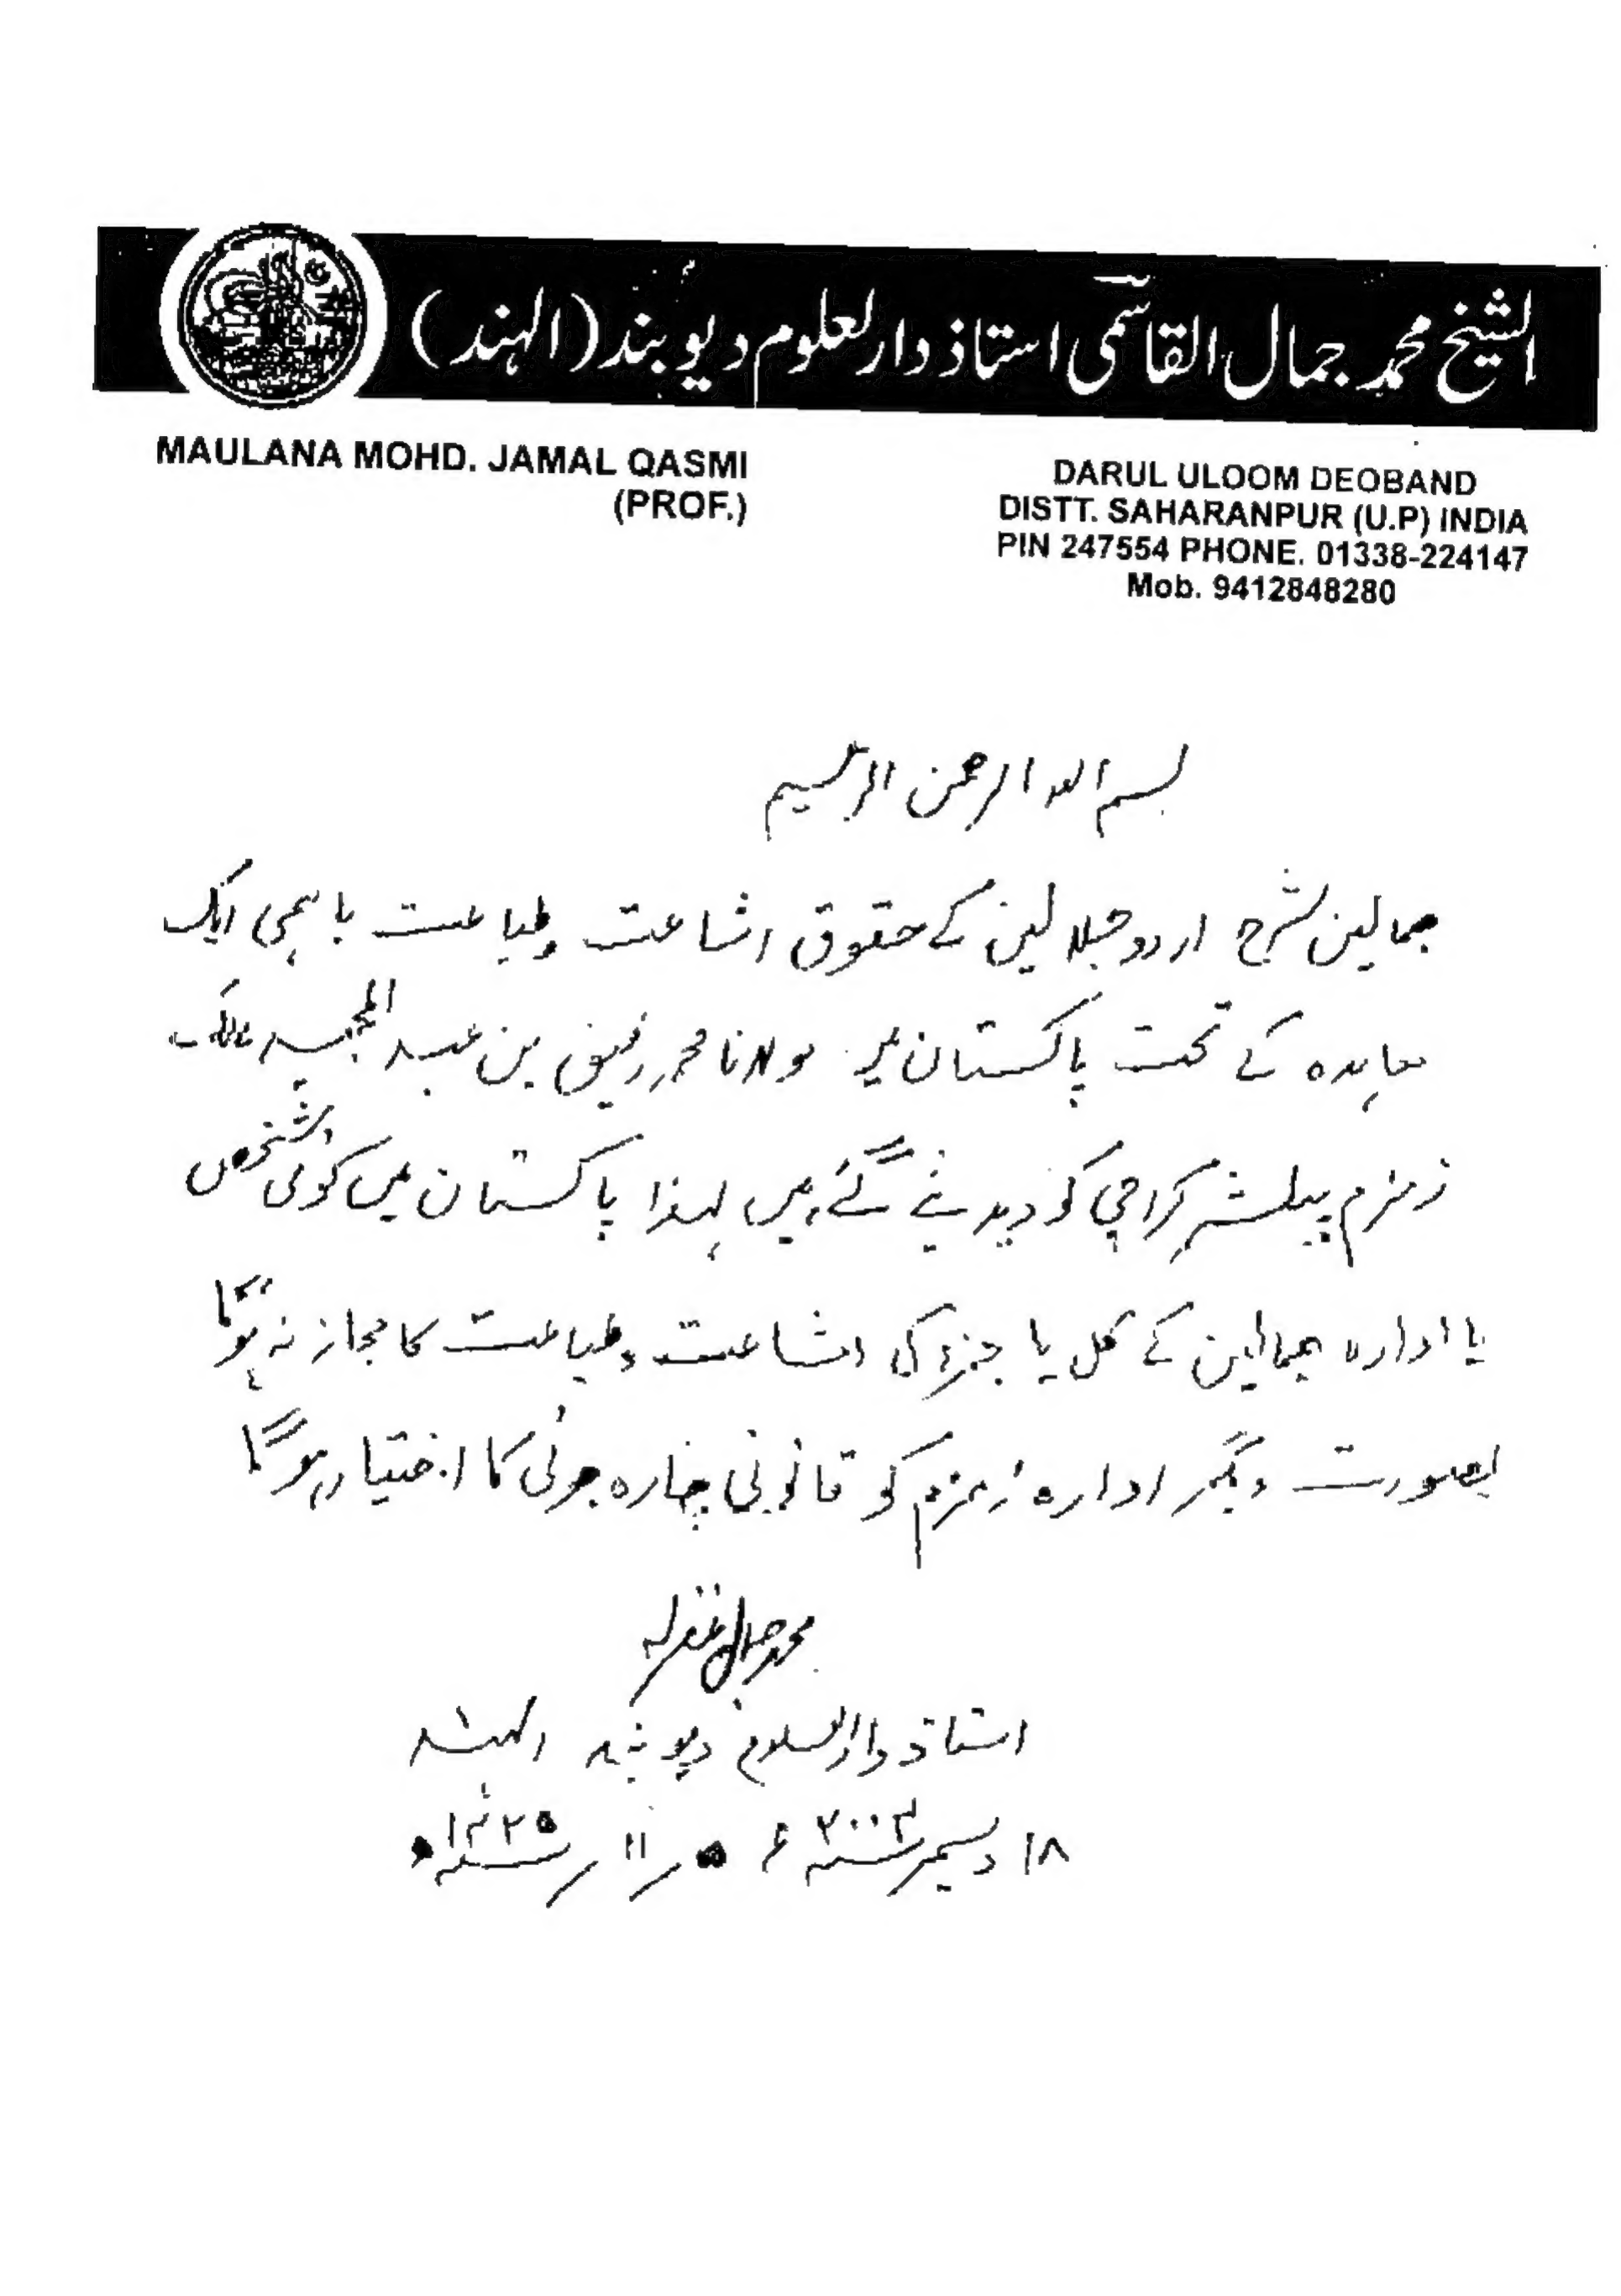 الشیخ محمد جمال القاسمی استاذ دارالعلوم دیوبند (الہند)
MAULANA MOHD. JAMAL QASMI
(PROF.)
DARUL ULOOM DEOBAND
DISTT. SAHARANPUR (U.P) INDIA
PIN 247554 PHONE. 01338-224147
Mob. 9412848280
بسم اللہ الرحمن الرحیم
جمالین شرح اردو جلالین کے حقوق اشاعت وطباعت باہمی ایک
معاہدہ کے تحت پاکستان میں مولانا محمد رفیق بن عبد المجید مالک
زمزم پبلشر کراچی کو دیدیئے گئے ہیں لہذا پاکستان میں کوئی شخص
یا ادارہ جمالین کے کل یا جزء کی اشاعت وطباعت کا مجاز نہ ہوگا
بصورت دیگر ادارہ زمزم کو قانونی چارہ جوئی کا اختیار ہوگا
محمد جمال غفرلہ
استاذ دارالعلوم دیوبند الہند
۱۸ دسمبر ء ۱۱ / ۱۴۲۵ھ